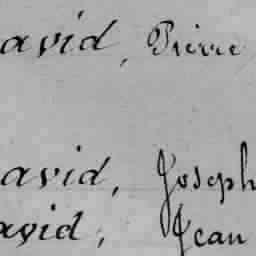 avid, Pierre
avid, Joseph
avid, Jean